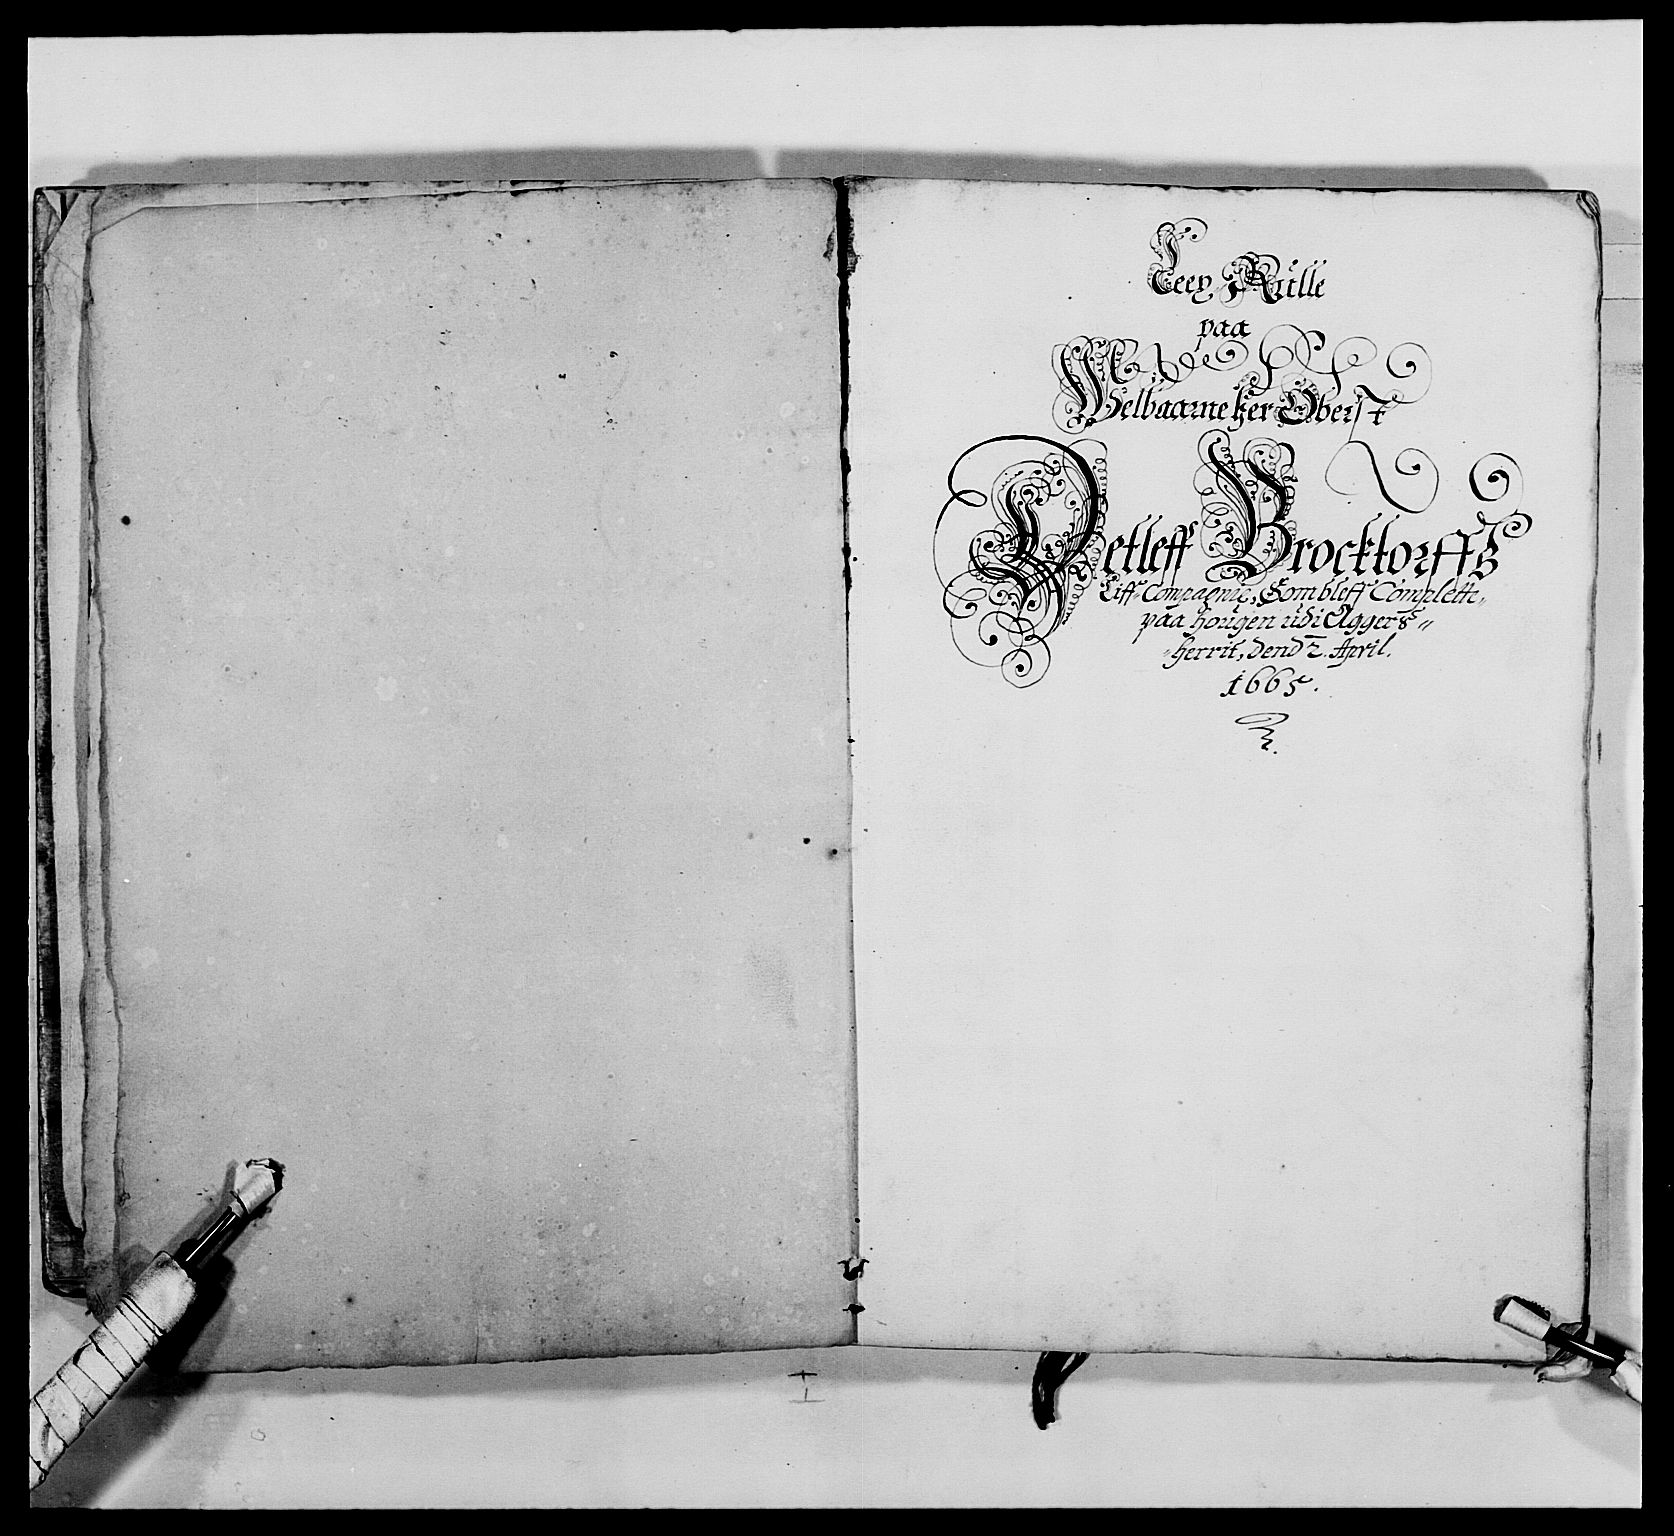 Leey Rulle
paa
Welbaarne her Oberst
Detleff Brocktorffs
Liff-Compagnie, Sombleff Complette,,
paa hougen udi Aggers,,
herrit, dend 2. April.
1665.